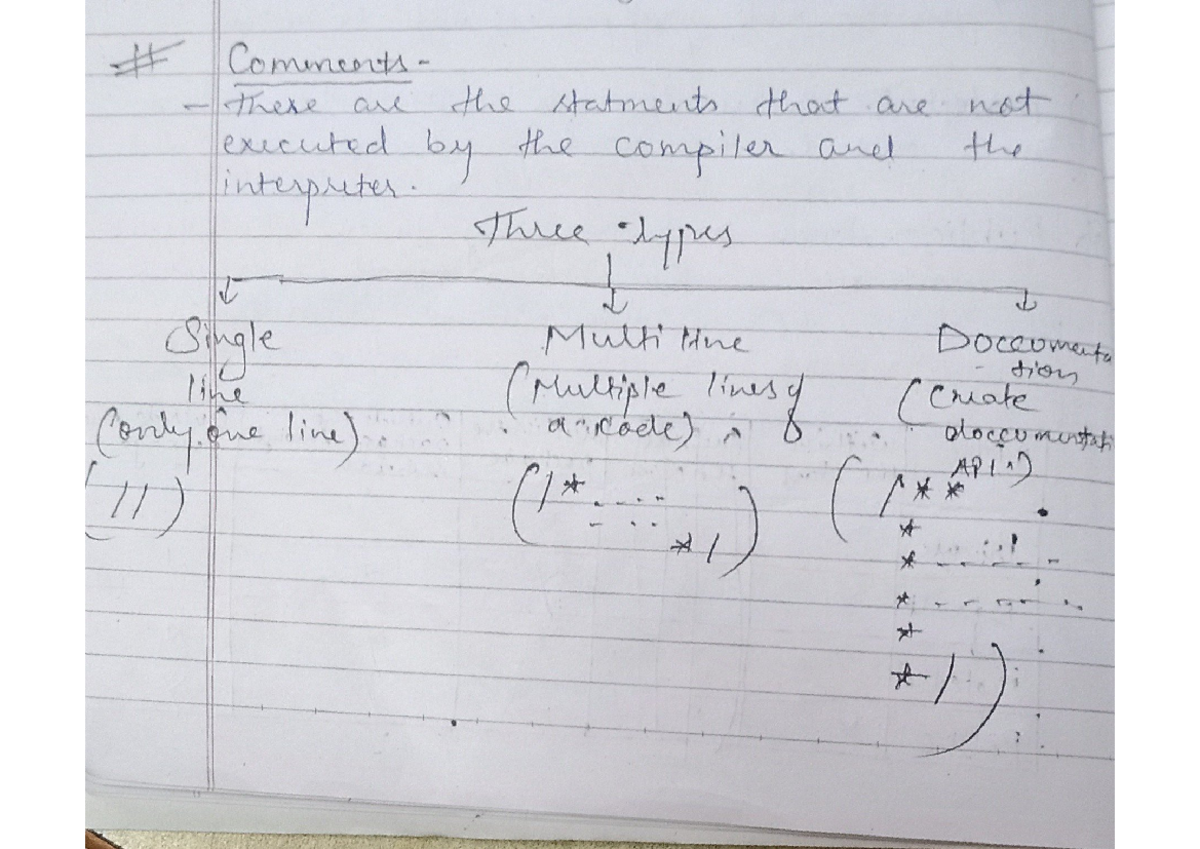 # Comments -
- These are the statments that are not
executed by the compiler and the
interpreter.
Three types
Single
line
(only one line)
( // )
Multi line
(Multiple lines of
a code)
( /* -----
- - - -
*/ )
Doccumenta
tion
(Create
doccumentati
API's)
( /**
*
* - - - - -
* - - - - - -
*
*/ )